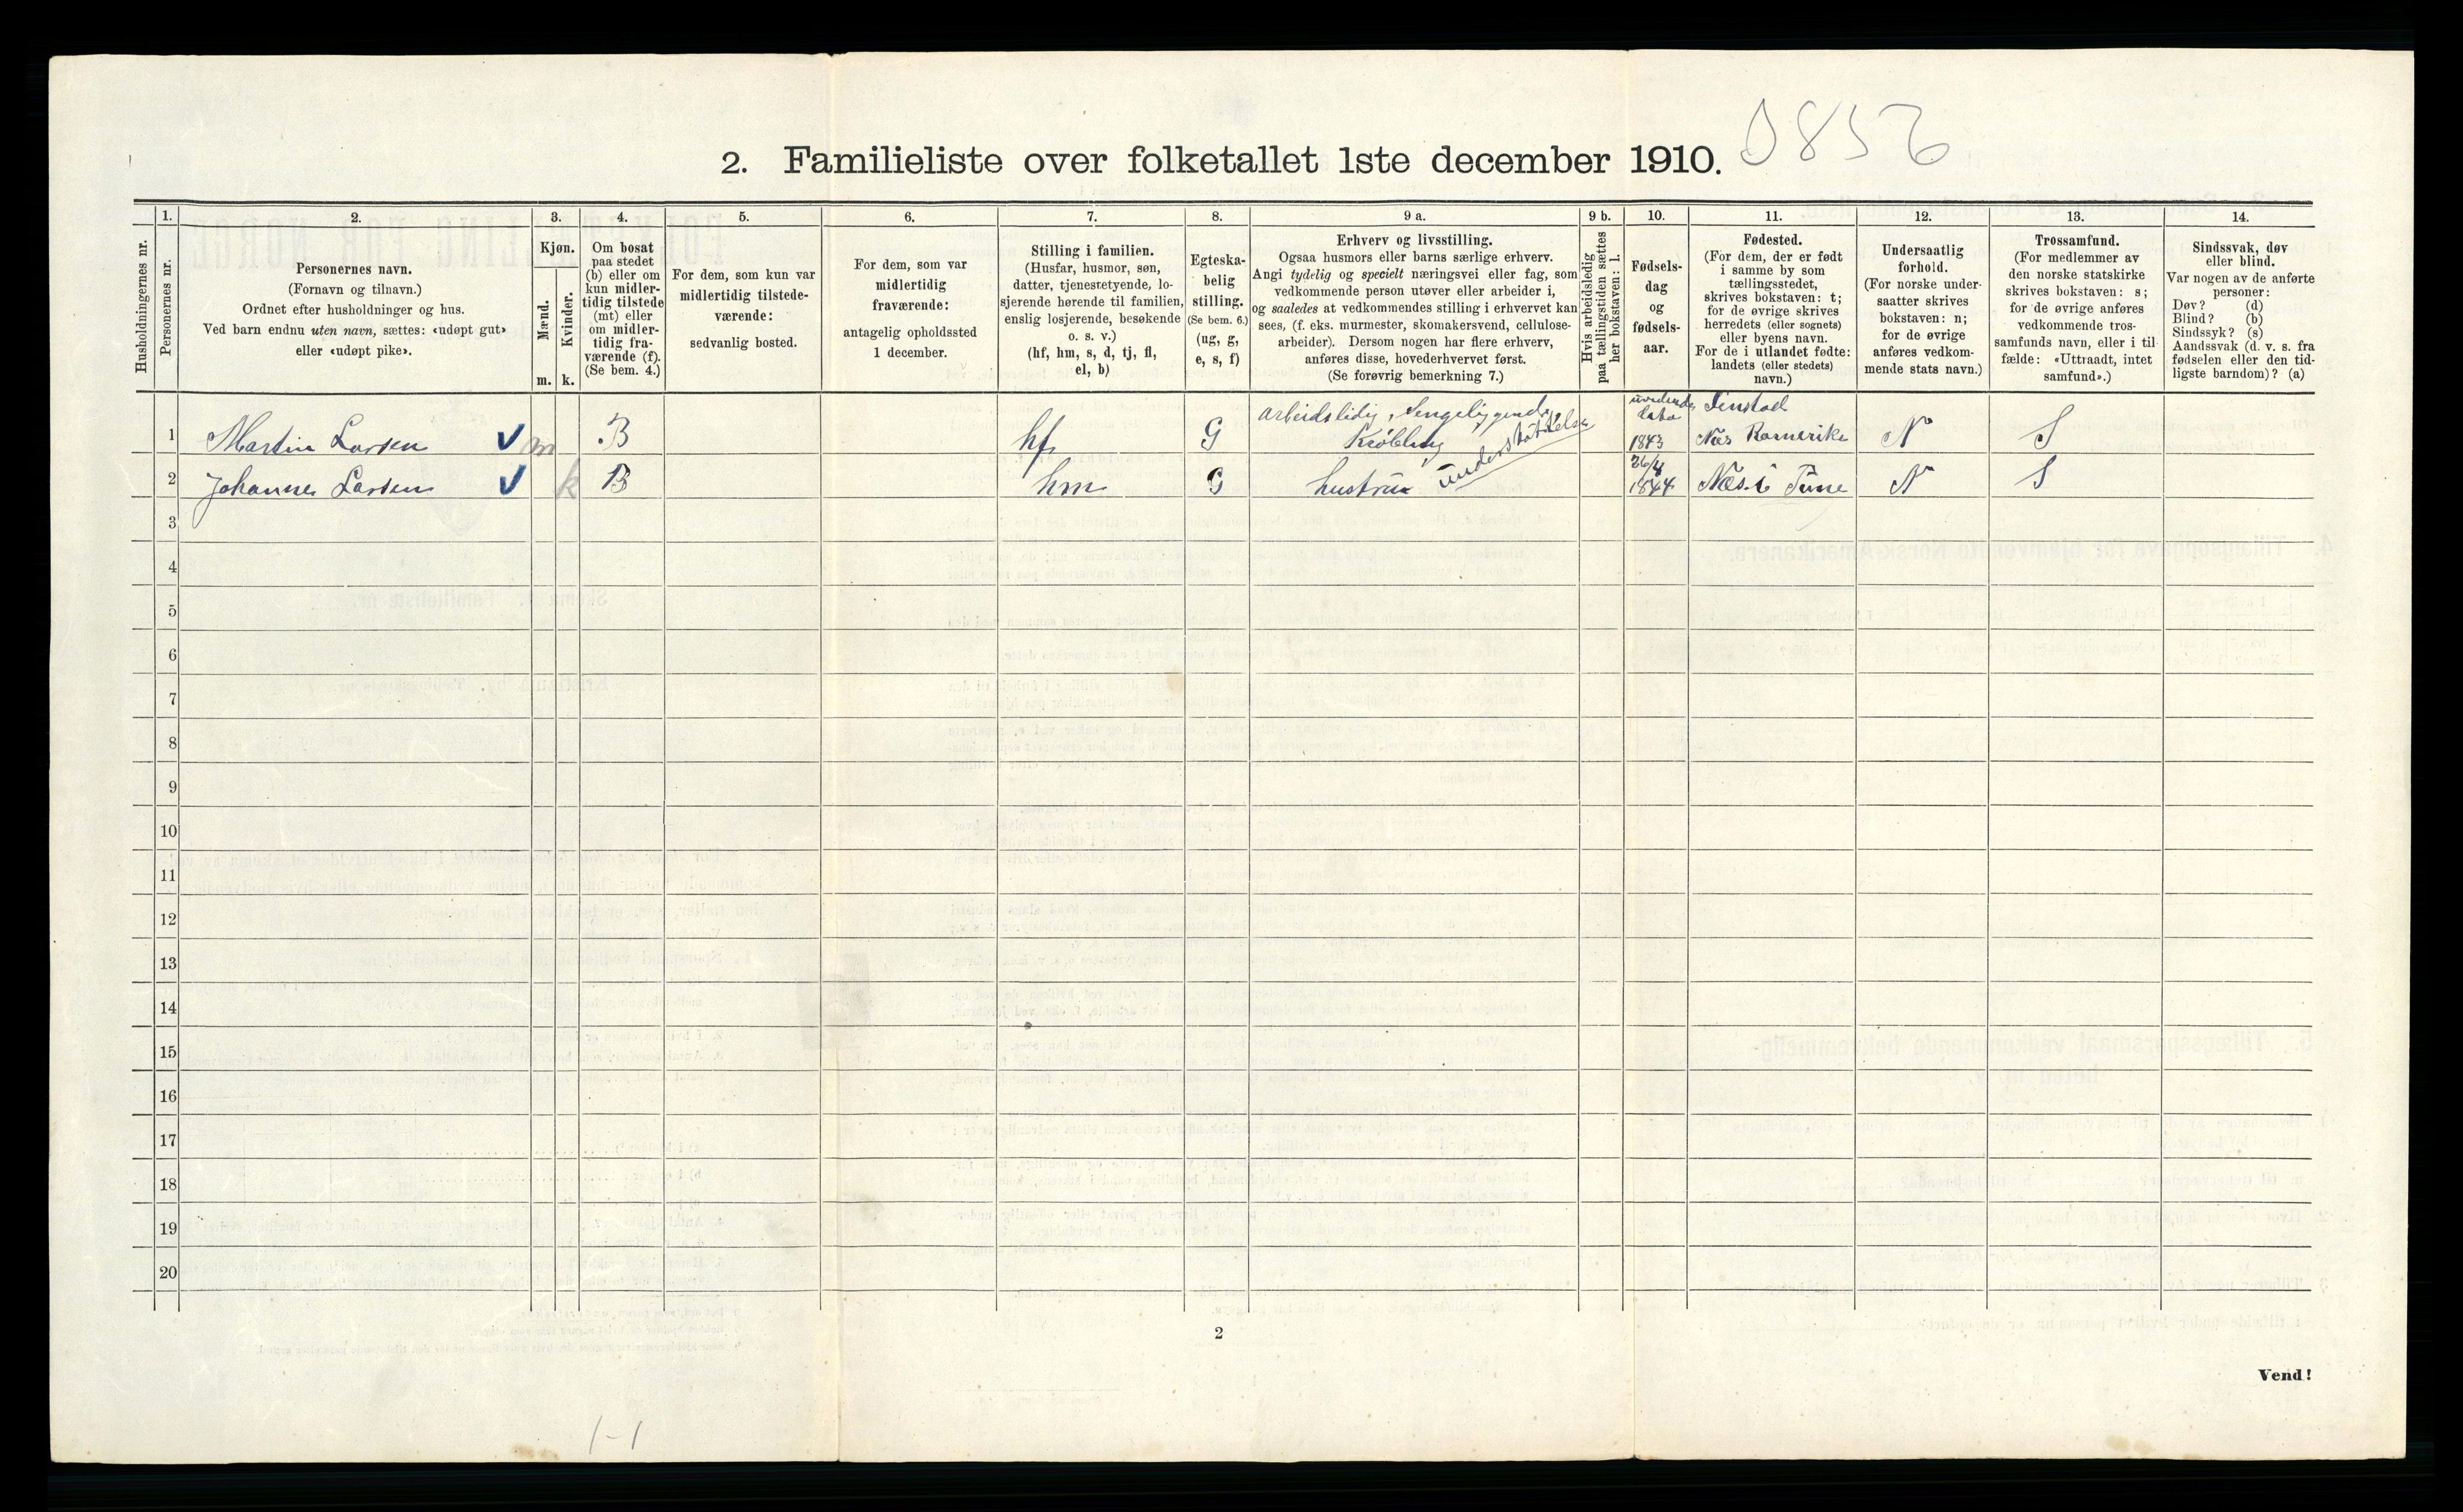 2. Familieliste over folketallet 1ste december 1910.
Husholdningernes nr.
1.
Personernes nr.
2.
Personernes navn.
(Fornavn og tilnavn.)
Ordnet efter husholdninger og hus.
Ved barn endnu uten navn, sættes: «udøpt gut»
eller «udøpt pike».
3.
Kjøn.
Mænd.
m.
Kvinder.
k.
4.
Om bosat
paa stedet
(b) eller om
kun midler-
tidig tilstede
(mt) eller
om midler-
tidig fra-
værende (f).
(Se bem. 4.)
5.
For dem, som kun var
midlertidig tilstede-
værende:
sedvanlig bosted.
6.
For dem, som var
midlertidig
fraværende:
antagelig opholdssted
1 december.
7.
Stilling i familien.
(Husfar, husmor, søn,
datter, tjenestetyende, lo-
sjerende hørende til familien,
enslig losjerende, besøkende
o. s. v.)
(hf, hm, s, d, tj, fl,
el, b)
8.
Egteska-
belig
stilling.
(Se bem. 6.)
(ug, g,
e, s, f)
9 a.
Erhverv og livsstilling.
Ogsaa husmors eller barns særlige erhverv.
Angi tydelig og specielt næringsvei eller fag, som
vedkommende person utøver eller arbeider i,
og saaledes at vedkommendes stilling i erhvervet kan
sees, (f. eks. murmester, skomakersvend, cellulose-
arbeider). Dersom nogen har flere erhverv,
anføres disse, hovederhvervet først.
(Se forøvrig bemerkning 7.)
9 b.
Hvis arbeidsledig
paa tællingstiden sættes
her bokstaven: l.
10.
Fødsels-
dag
og
fødsels-
aar.
11.
Fødested.
(For dem, der er født
i samme by som
tællingsstedet,
skrives bokstaven: t;
for de øvrige skrives
herredets (eller sognets)
eller byens navn.
For de i utlandet fødte:
landets (eller stedets)
navn.)
12.
Undersaatlig
forhold.
(For norske under-
saatter skrives
bokstaven: n;
for de øvrige
anføres vedkom-
mende stats navn.)
13.
Trossamfund.
(For medlemmer av
den norske statskirke
skrives bokstaven: s;
for de øvrige anføres
vedkommende tros-
samfunds navn, eller i til-
fælde: «Uttraadt, intet
samfund».)
14.
Sindssvak, døv
eller blind.
Var nogen av de anførte
personer:
Døv? (d)
Blind? (b)
Sindssyk? (s)
Aandssvak (d. v. s. fra
fødselen eller den tid-
ligste barndom)? (a)
1 Martin Larsen m B hf G Arbeidsledig, Sengeliggende, Krøbling understøttelse 1843 Næs Romerike N S
2 Johanne Larsen k B hm G hustru 26/4 1844 Næs i Tune N S
3
4
5
6
7
8
9
10
11
12
13
14
15
16
17
18
19
20
2
Vend!
1-1